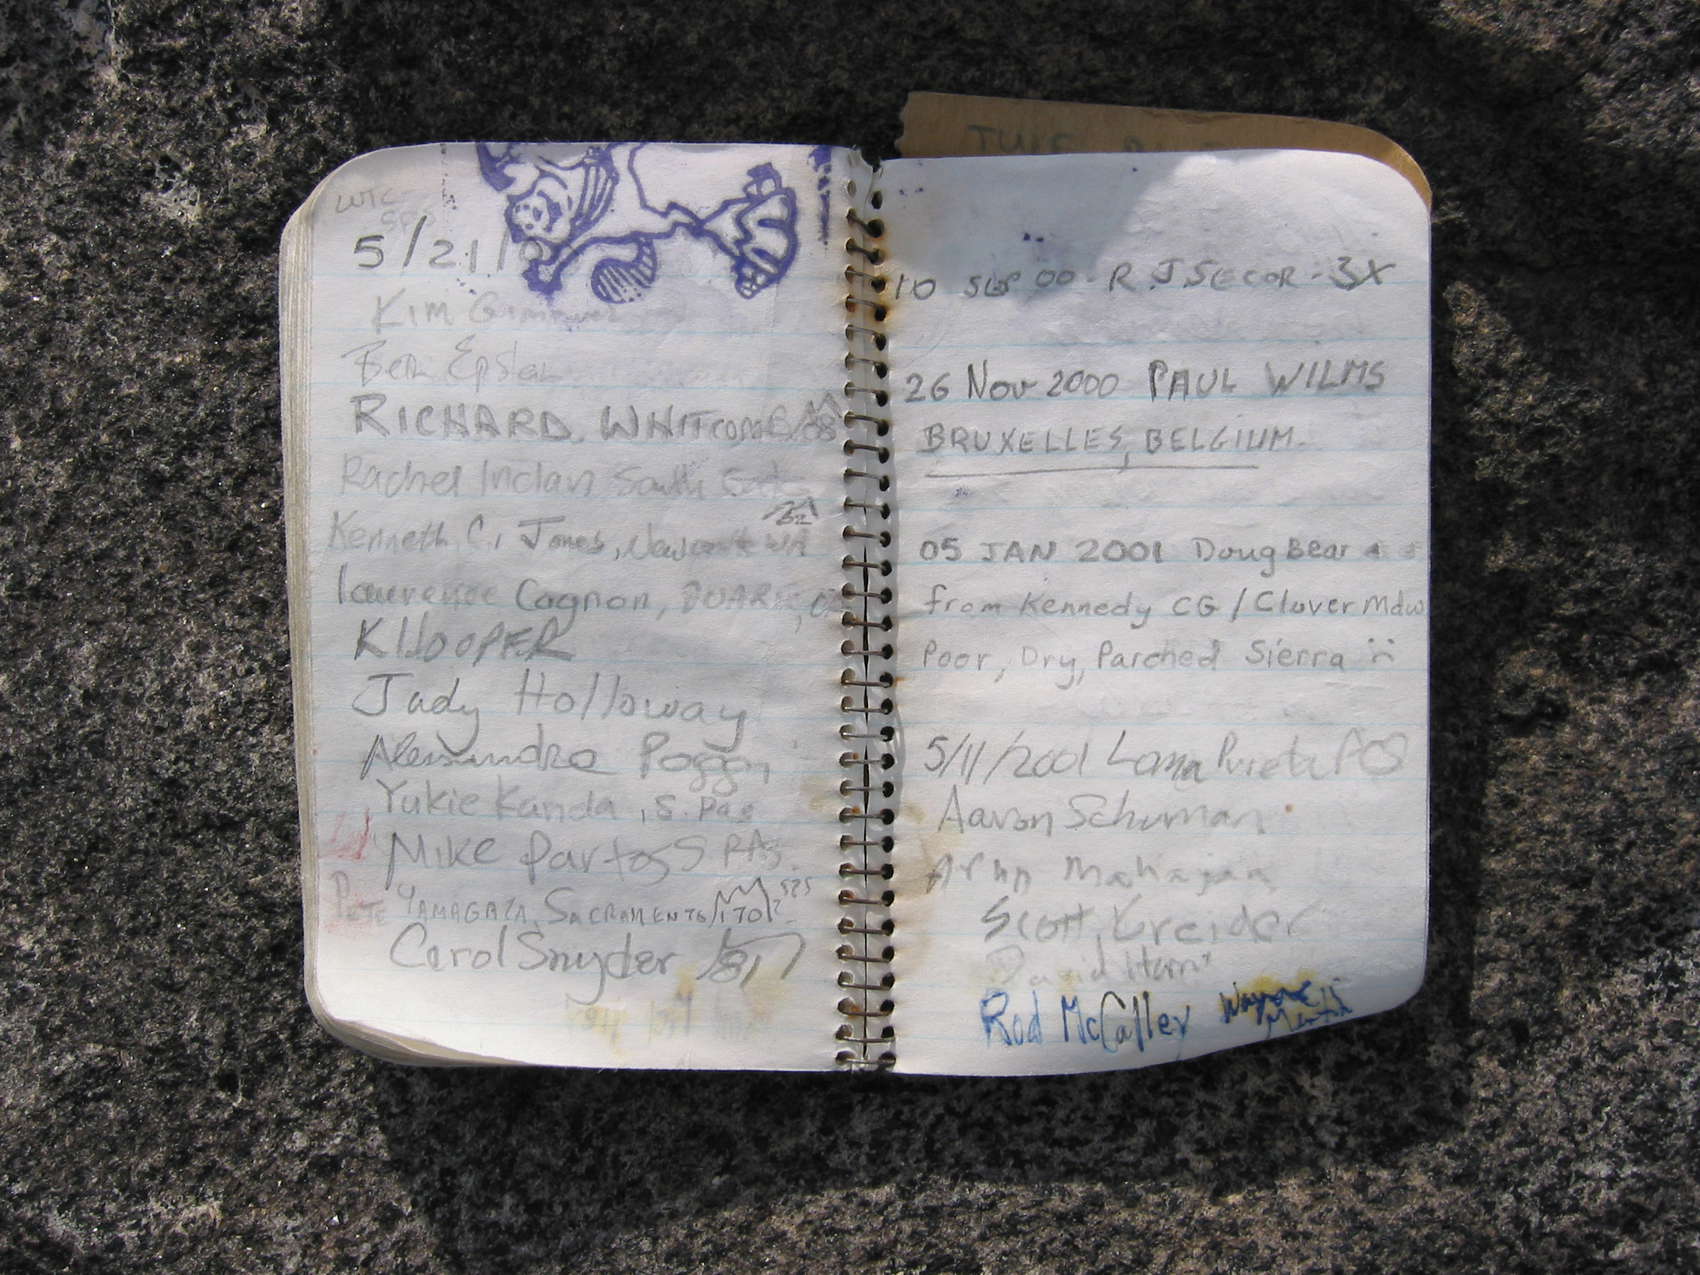 WTC
5/21/
Kim
Ben
RICHARD WHITCOMB
Rachel Inclan South
Kenneth C. Jones,
Lawrence Cagnon, DUARTE,
K HOOPER
Judy Holloway
Alessandra Poggi
Yukie Kanda, S. Pas
Mike Partos S PAS
PETE YAMAGATA, SACRAMENTO
Carol Snyder
10 SEP 00 - R. J. SECOR - 3X
26 Nov 2000 PAUL WILMS
BRUXELLES, BELGIUM.
05 JAN 2001 Doug Bear
from Kennedy CG / Clover Mdw
Poor, Dry, Parched Sierra
5/11/2001 Loma Prieta PCS
Aaron Schuman
Arun Mahajan
Scott Kreider
David Harris
Rod McCalley Wayne Martin